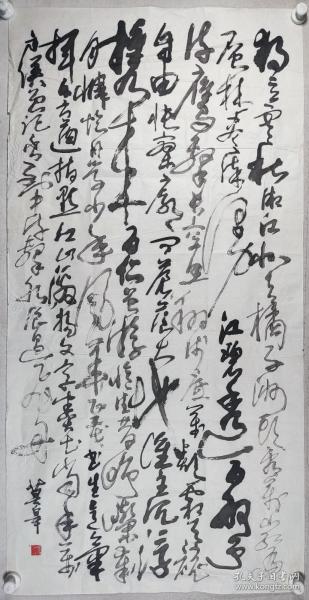 独立寒秋湘江北去橘子洲头看万山红遍
层林尽染漫江碧透百舸争
流鹰击长空鱼翔浅底万类霜天竞
自由怅寥廓问苍茫大地谁主沉浮
携来百侣曾游忆往昔峥嵘岁
月稠恰同学少年风华正茂书生意气
挥斥方遒指点江山激扬文字粪土当年万
户侯曾记否到中流击水浪遏飞舟
孔夫子旧书网